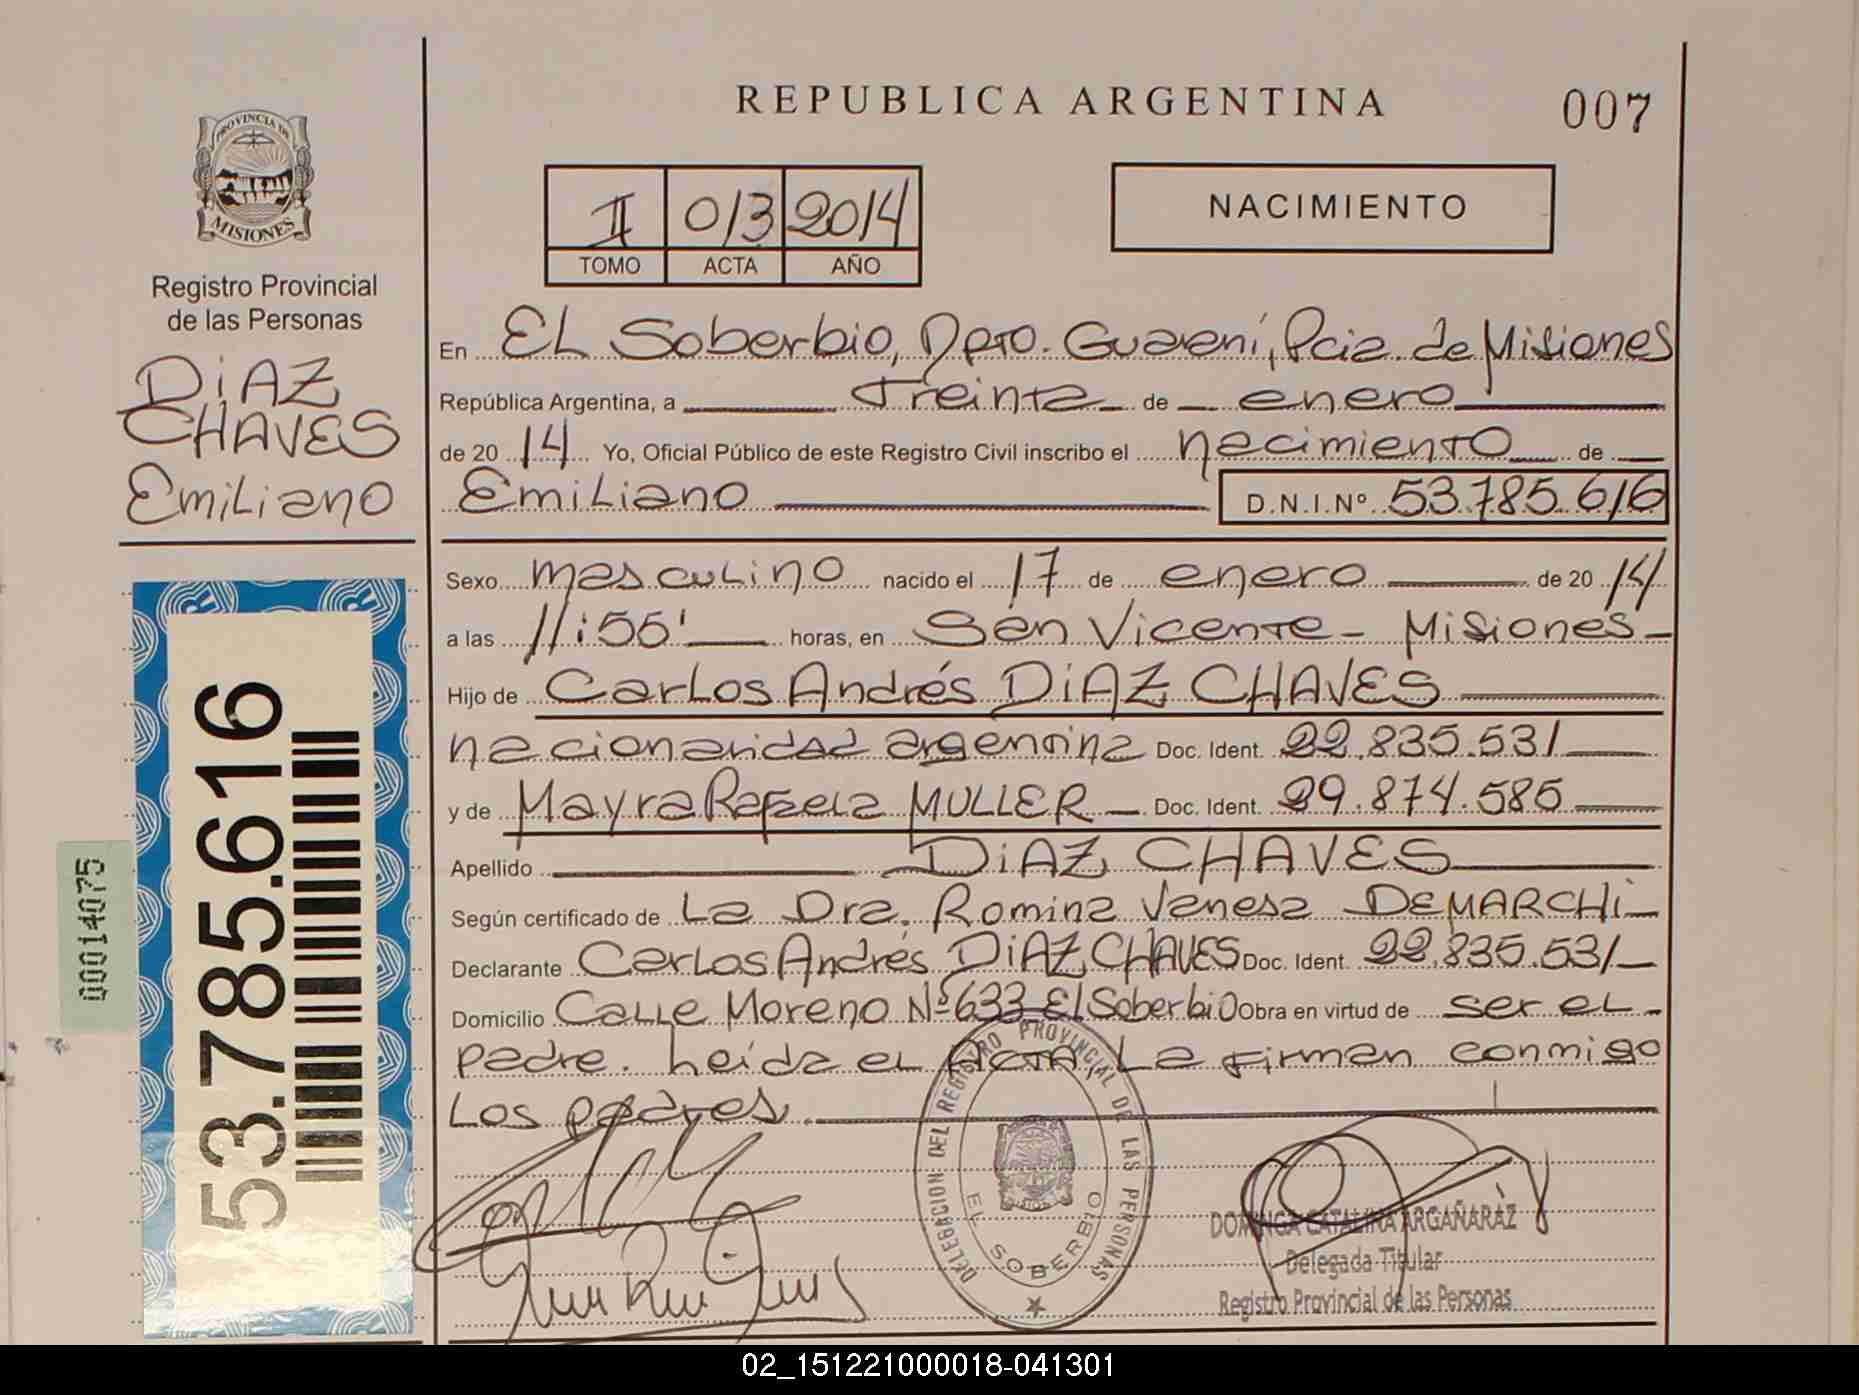 REPUBLICA ARGENTINA
007
PROVINCIA DE
MISIONES
Registro Provincial
de las Personas
DiAZ
CHAVES
Emiliano
II 013 2014
TOMO ACTA AÑO
NACIMIENTO
En EL Soberbio, Dpto. Guaraní, Pcia. de Misiones
República Argentina, a treinta de enero
de 20 14 Yo, Oficial Público de este Registro Civil inscribo el nacimiento de
Emiliano D.N.I.Nº 53.785.616
Sexo masculino nacido el 17 de enero de 20 14
a las 11:55' horas, en San Vicente - Misiones -
Hijo de Carlos Andrés DiAZ CHAVES
nacionalidad argentina Doc. Ident. 22.835.531
y de Mayra Rafaela MULLER - Doc. Ident. 29.874.585
Apellido DiAZ CHAVES
Según certificado de La Dra. Romina Vanesa DEMARCHi
Declarante Carlos Andrés DiAZ CHAVES Doc. Ident. 22.835.531
Domicilio Calle Moreno Nº 633 El Soberbio Obra en virtud de ser el
padre. Leída el ACTA La firman conmigo
Los padres.
53.785.616
00014075
DELEGACION DEL REGISTRO PROVINCIAL DE LAS PERSONAS
EL SOBERBIO
DOMINGA CATALINA ARGAÑARAZ
Delegada Titular
Registro Provincial de las Personas
02_151221000018-041301